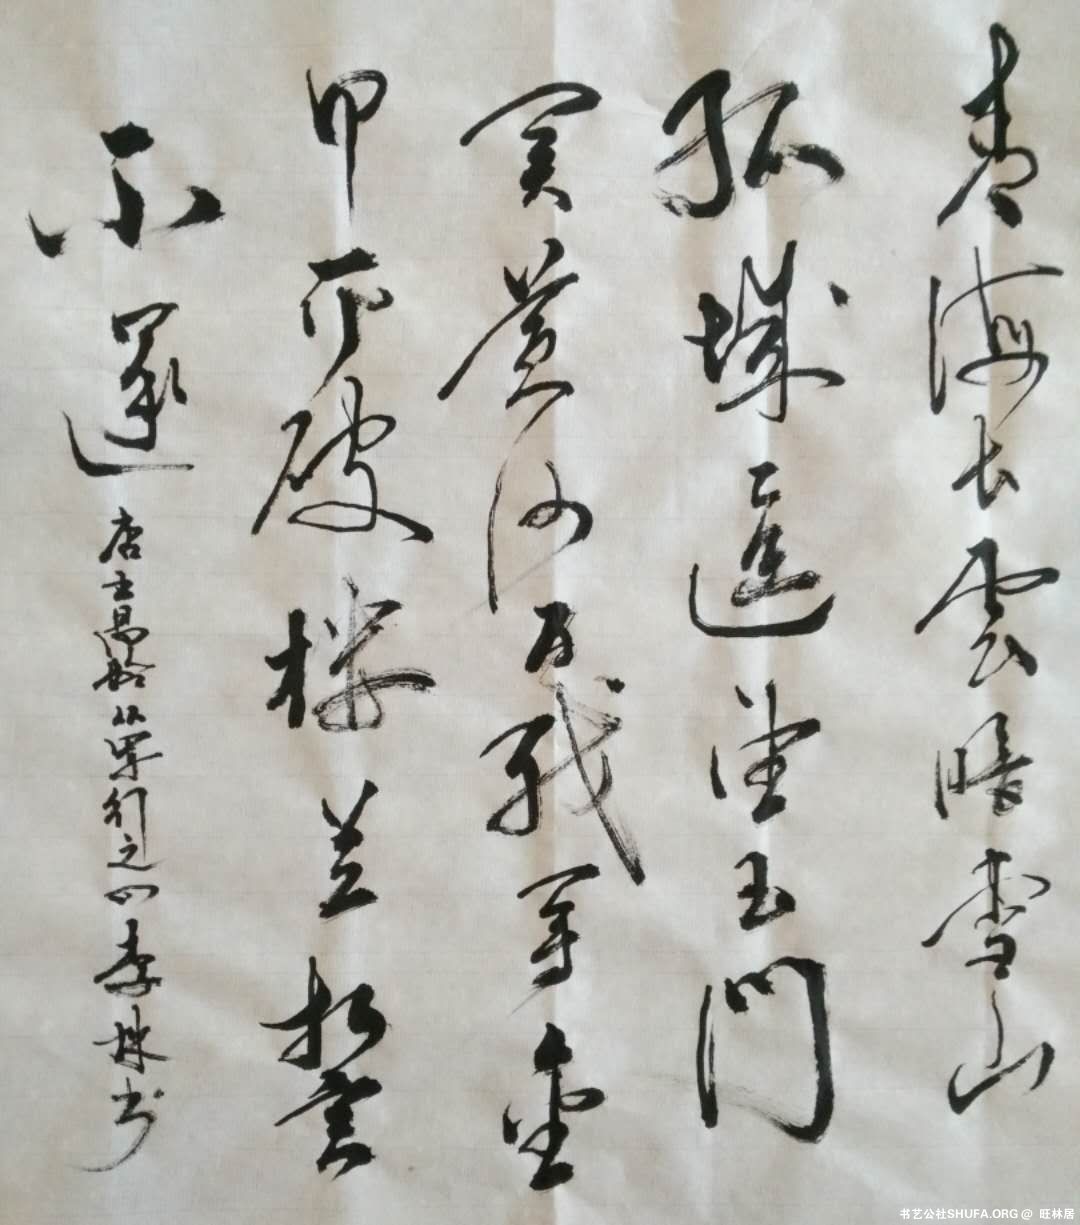 青海长雲暗雪山
孤城遥望玉門
关黄沙百戰穿金
甲不破楼兰誓
不還
唐王昌龄从军行之四 李书
书艺公社SHUFA.ORG @ 旺林居